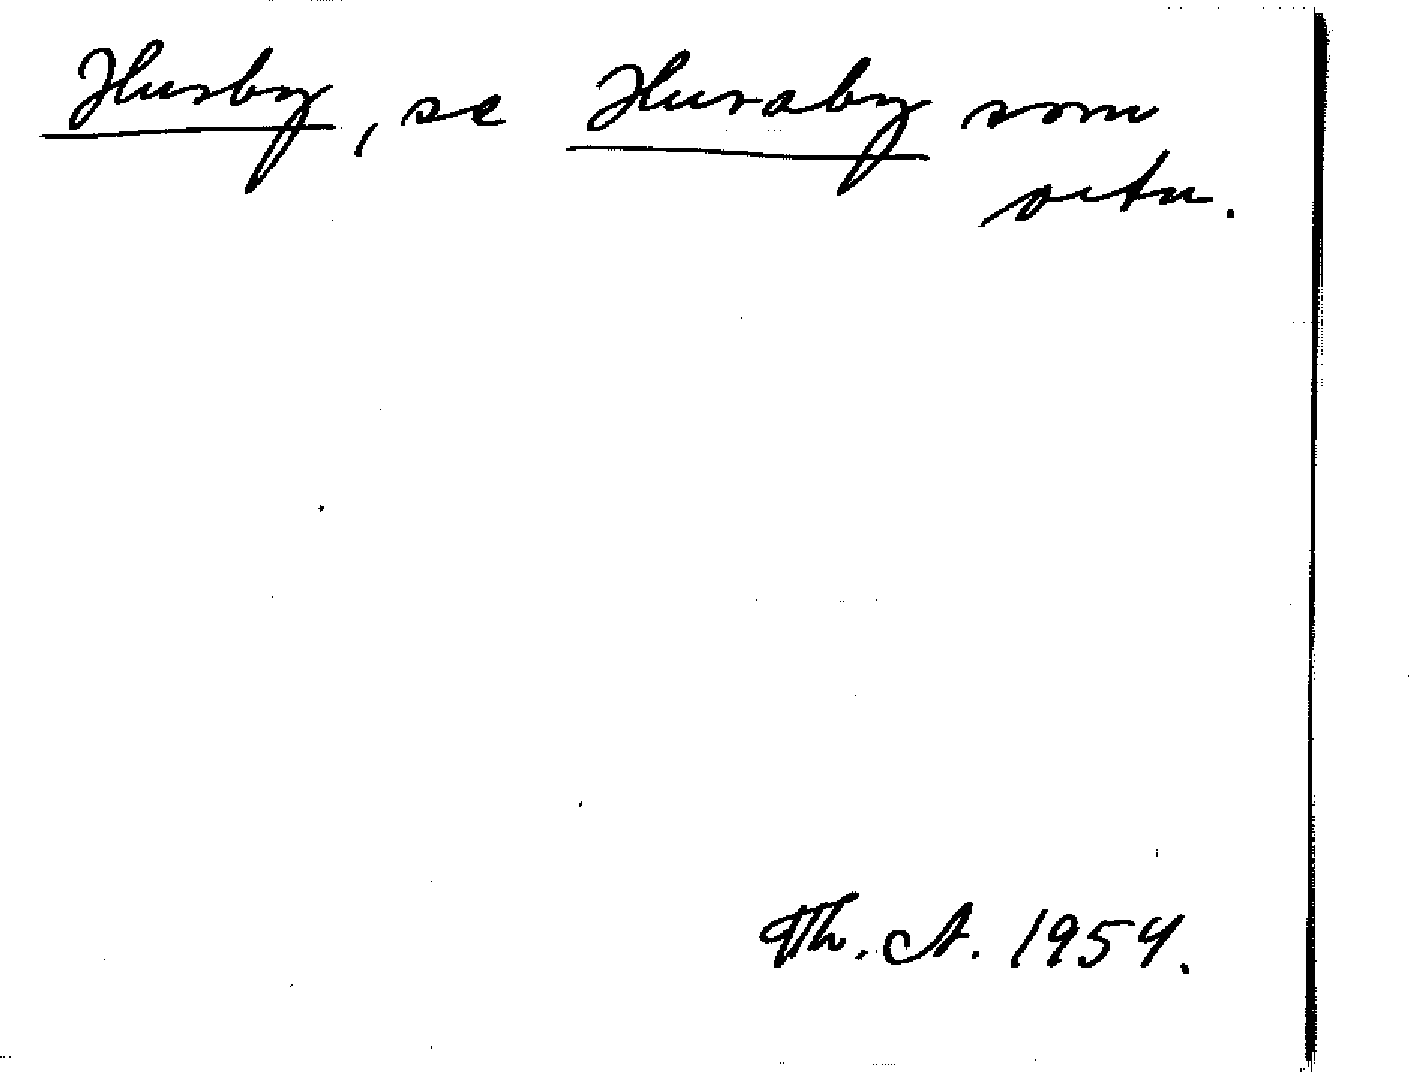 Husby, se Husaby som
ortn.
Th. A. 1954.